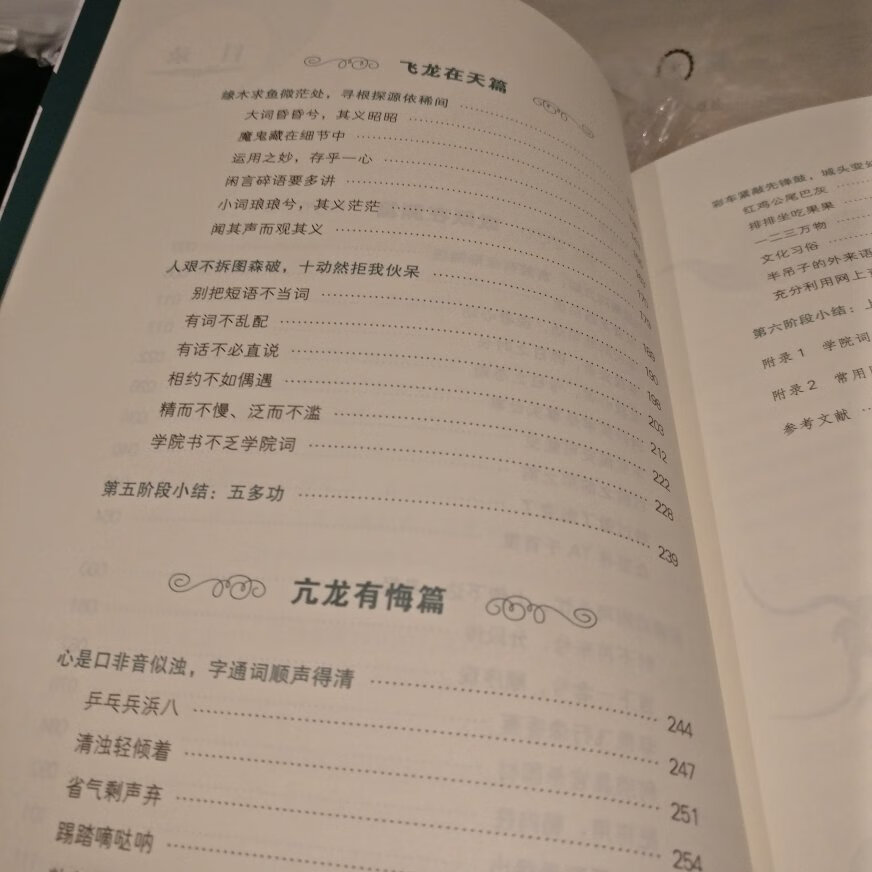 飞龙在天篇
缘木求鱼微茫处，寻根探源依稀间
大词昏昏兮，其义昭昭
魔鬼藏在细节中
运用之妙，存乎一心
闲言碎语要多讲
小词琅琅兮，其义茫茫
闻其声而观其义
人艰不拆图森破，十动然拒我伙呆
别把短语不当词
有词不乱配 189
有话不必直说 190
相约不如偶遇 198
精而不慢、泛而不滥 203
学院书不乏学院词 212
222
第五阶段小结：五多功 228
239
亢龙有悔篇
心是口非音似浊，字通词顺声得清 244
乒乓兵浜八 247
清浊轻倾着 251
省气剩声弃 254
踢踏嘀哒呐
彩车紧敲先锋鼓，城头变
红鸡公尾巴灰
排排坐吃果果
一二三万物
文化习俗
半吊子的外来语
充分利用网上
第六阶段小结：
附录1 学院词
附录2 常用
参考文献